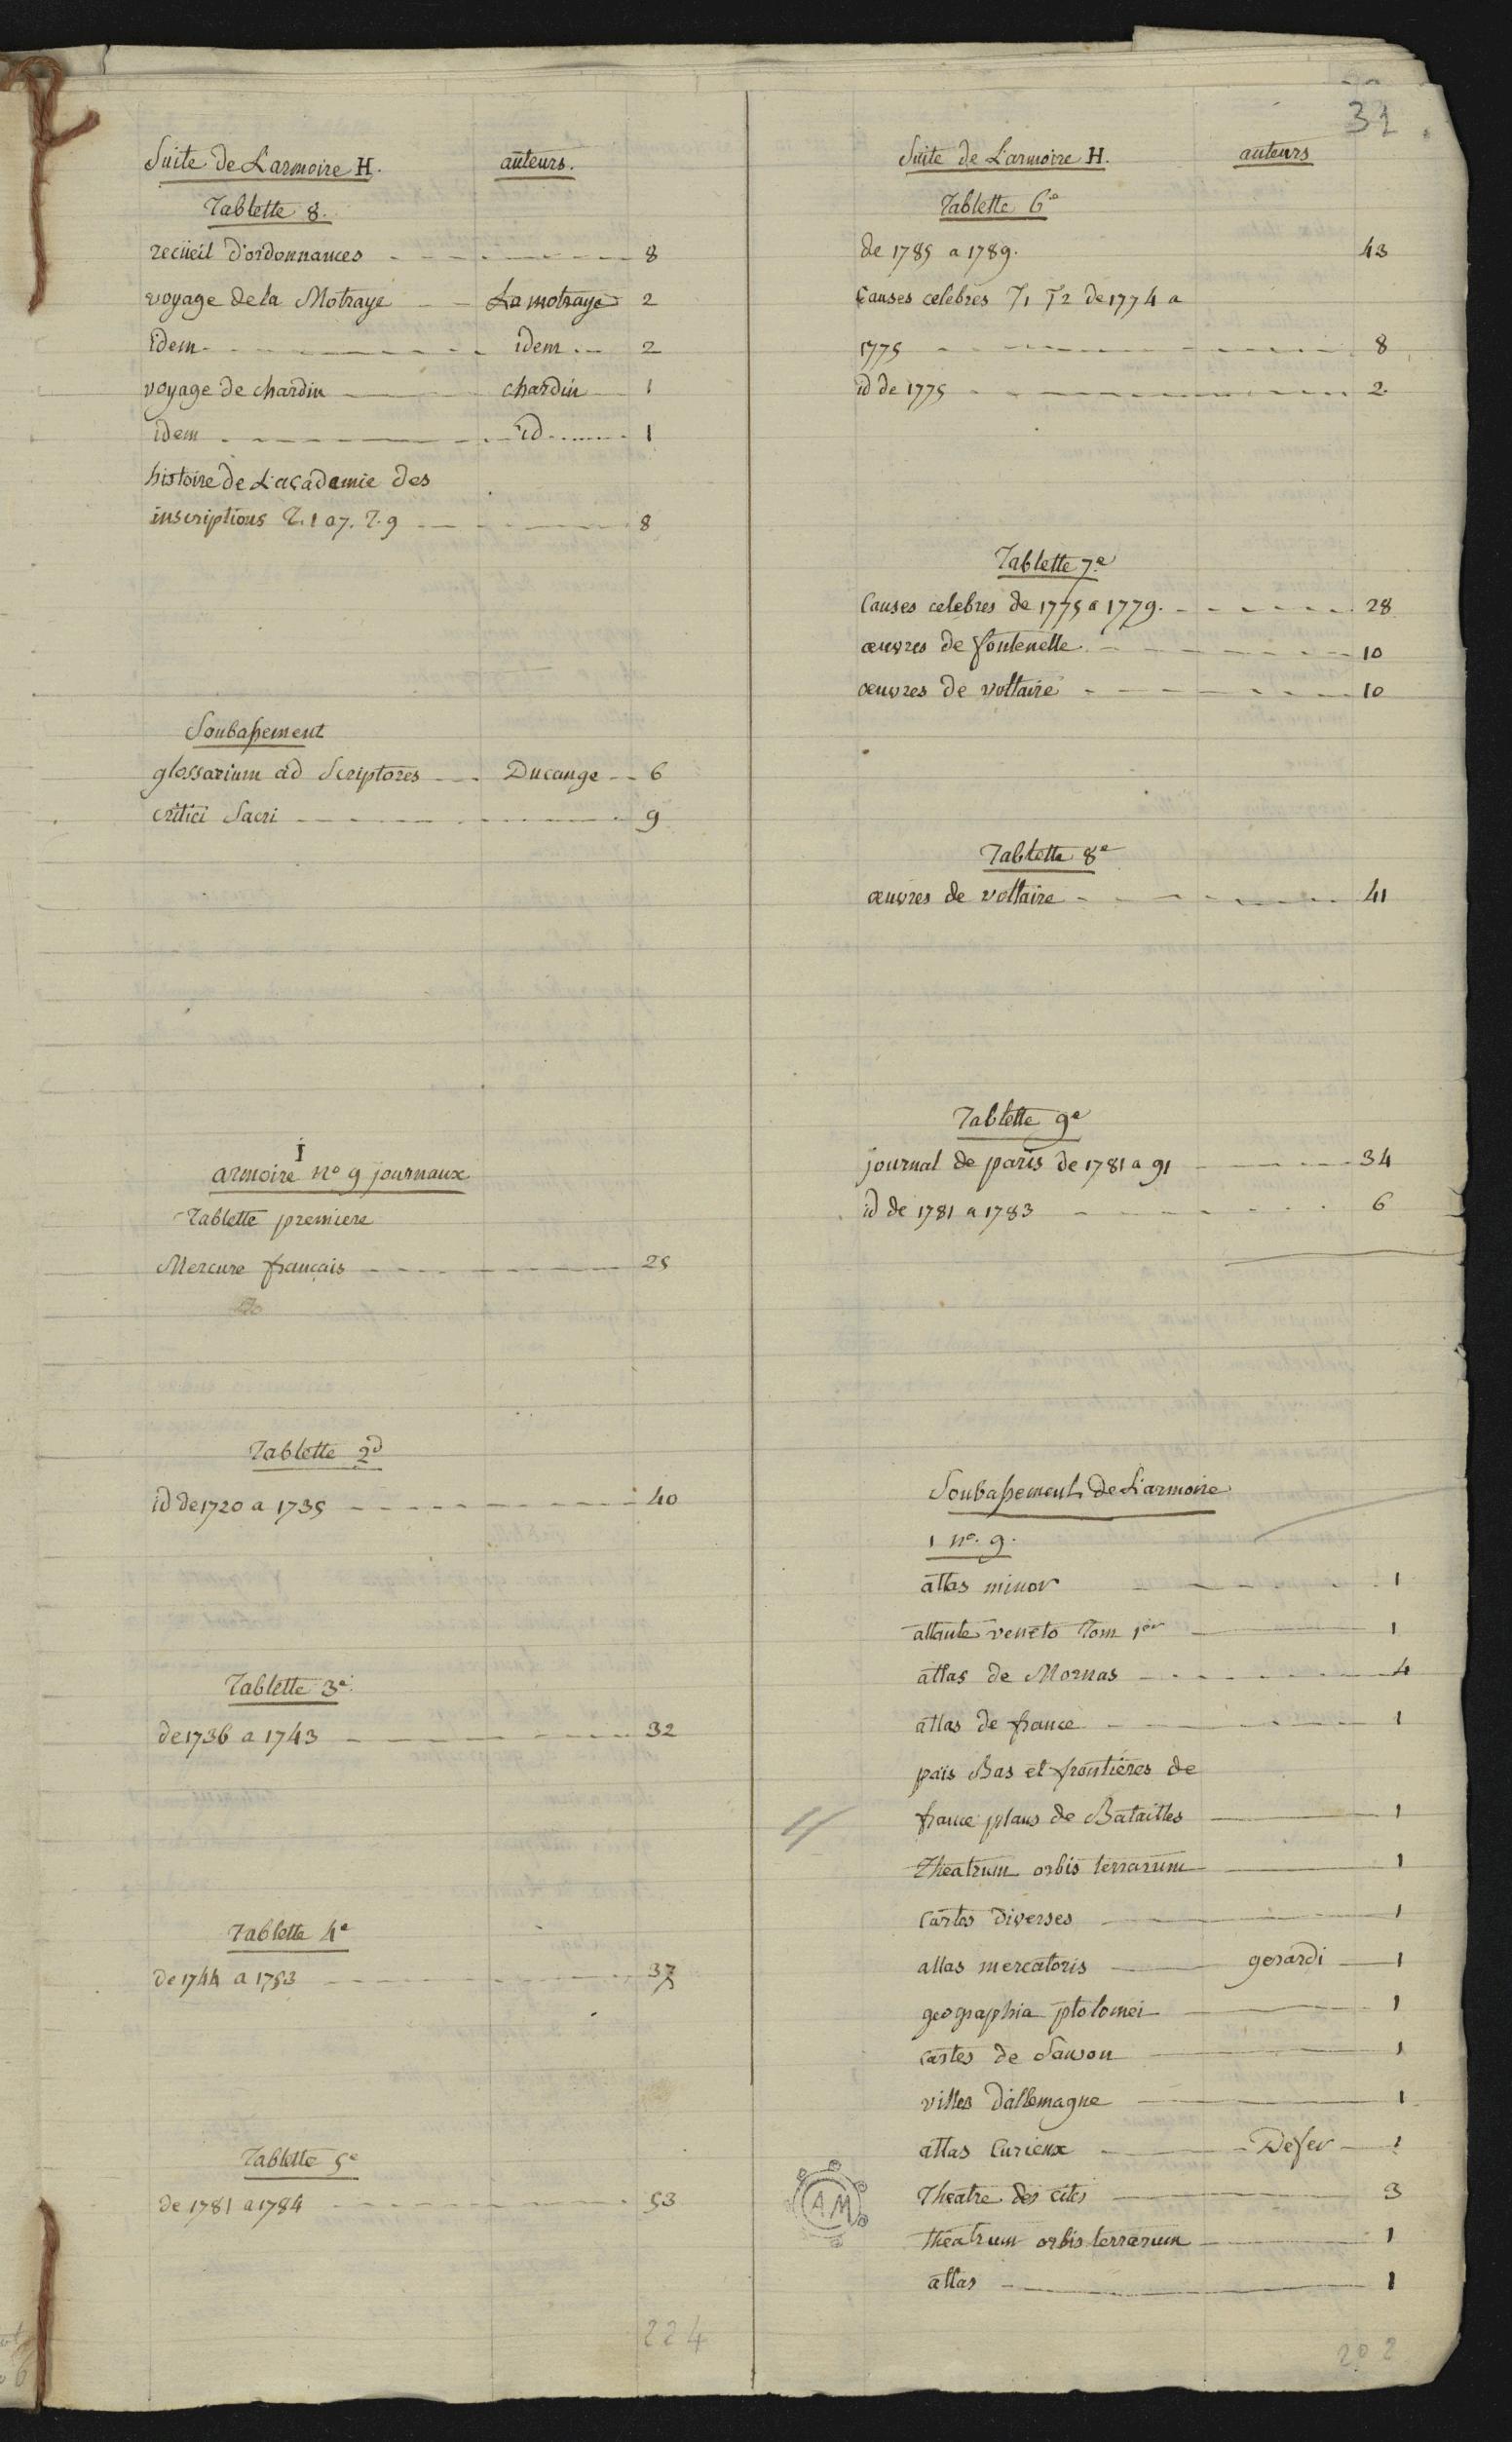 31
Suite de L'armoire H. auteurs.
Tablette 8.
recüeil d'ordonnances 8
voyage de la Motraye La motraye 2
idem idem 2
voyage de chardin chardin 1
idem id 1
histoire de L'académie des
inscriptions T. 1 a 7. T. 9 8
Soubassement
glossarium ad Scriptores Ducange 6
critici Sacri 9
I
armoire n° 9 journaux
Tablette premiere
Mercure français 25
Tablette 2d
id de 1720 a 1735 40
Tablette 3e
de 1736 a 1743 32
Tablette 4e
de 1744 a 1753 37
Tablette 5e
de 1781 a 1784 53
224
Suite de L'armoire H. auteurs
Tablette 6e
de 1785 a 1789. 43
Causes celebres T1 T2 de 1774 a
1775 8
id de 1775 2
Tablette 7e
Causes celebres de 1775 a 1779. 28
œuvres de fontenelle 10
œuvres de voltaire 10
Tablette 8e
œuvres de voltaire 41
Tablette 9e
journal de paris de 1781 a 91 34
id de 1781 a 1783 6
Soubassement de L'armoire
1 n°. 9.
atlas minor 1
atlante veneto Tom 1er 1
atlas de Mornas 4
atlas de france 1
païs Bas et frontières de
france plans de Batailles 1
Theatrum orbis terrarum 1
Cartes diverses 1
atlas mercatoris gerardi 1
geographia ptolomei 1
cartes de Sanson 1
villes d'allemagne 1
atlas Curieux Defer 1
Theatre des cités 3
theatrum orbis terrarum 1
atlas 1
AM
202